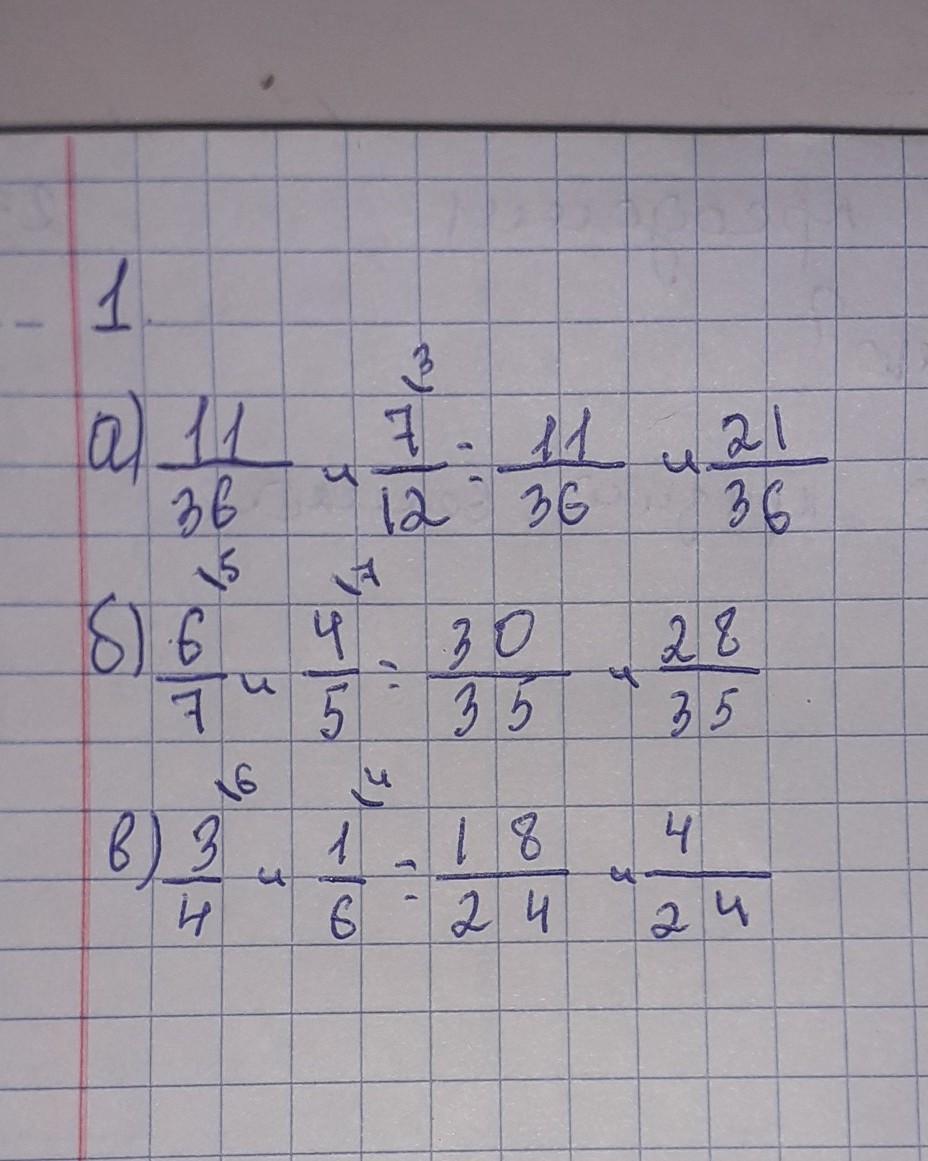 1.
3
а) 11/36 и 7/12 = 11/36 и 21/36
5 7
б) 6/7 и 4/5 = 30/35 и 28/35
6 4
в) 3/4 и 1/6 = 18/24 и 4/24